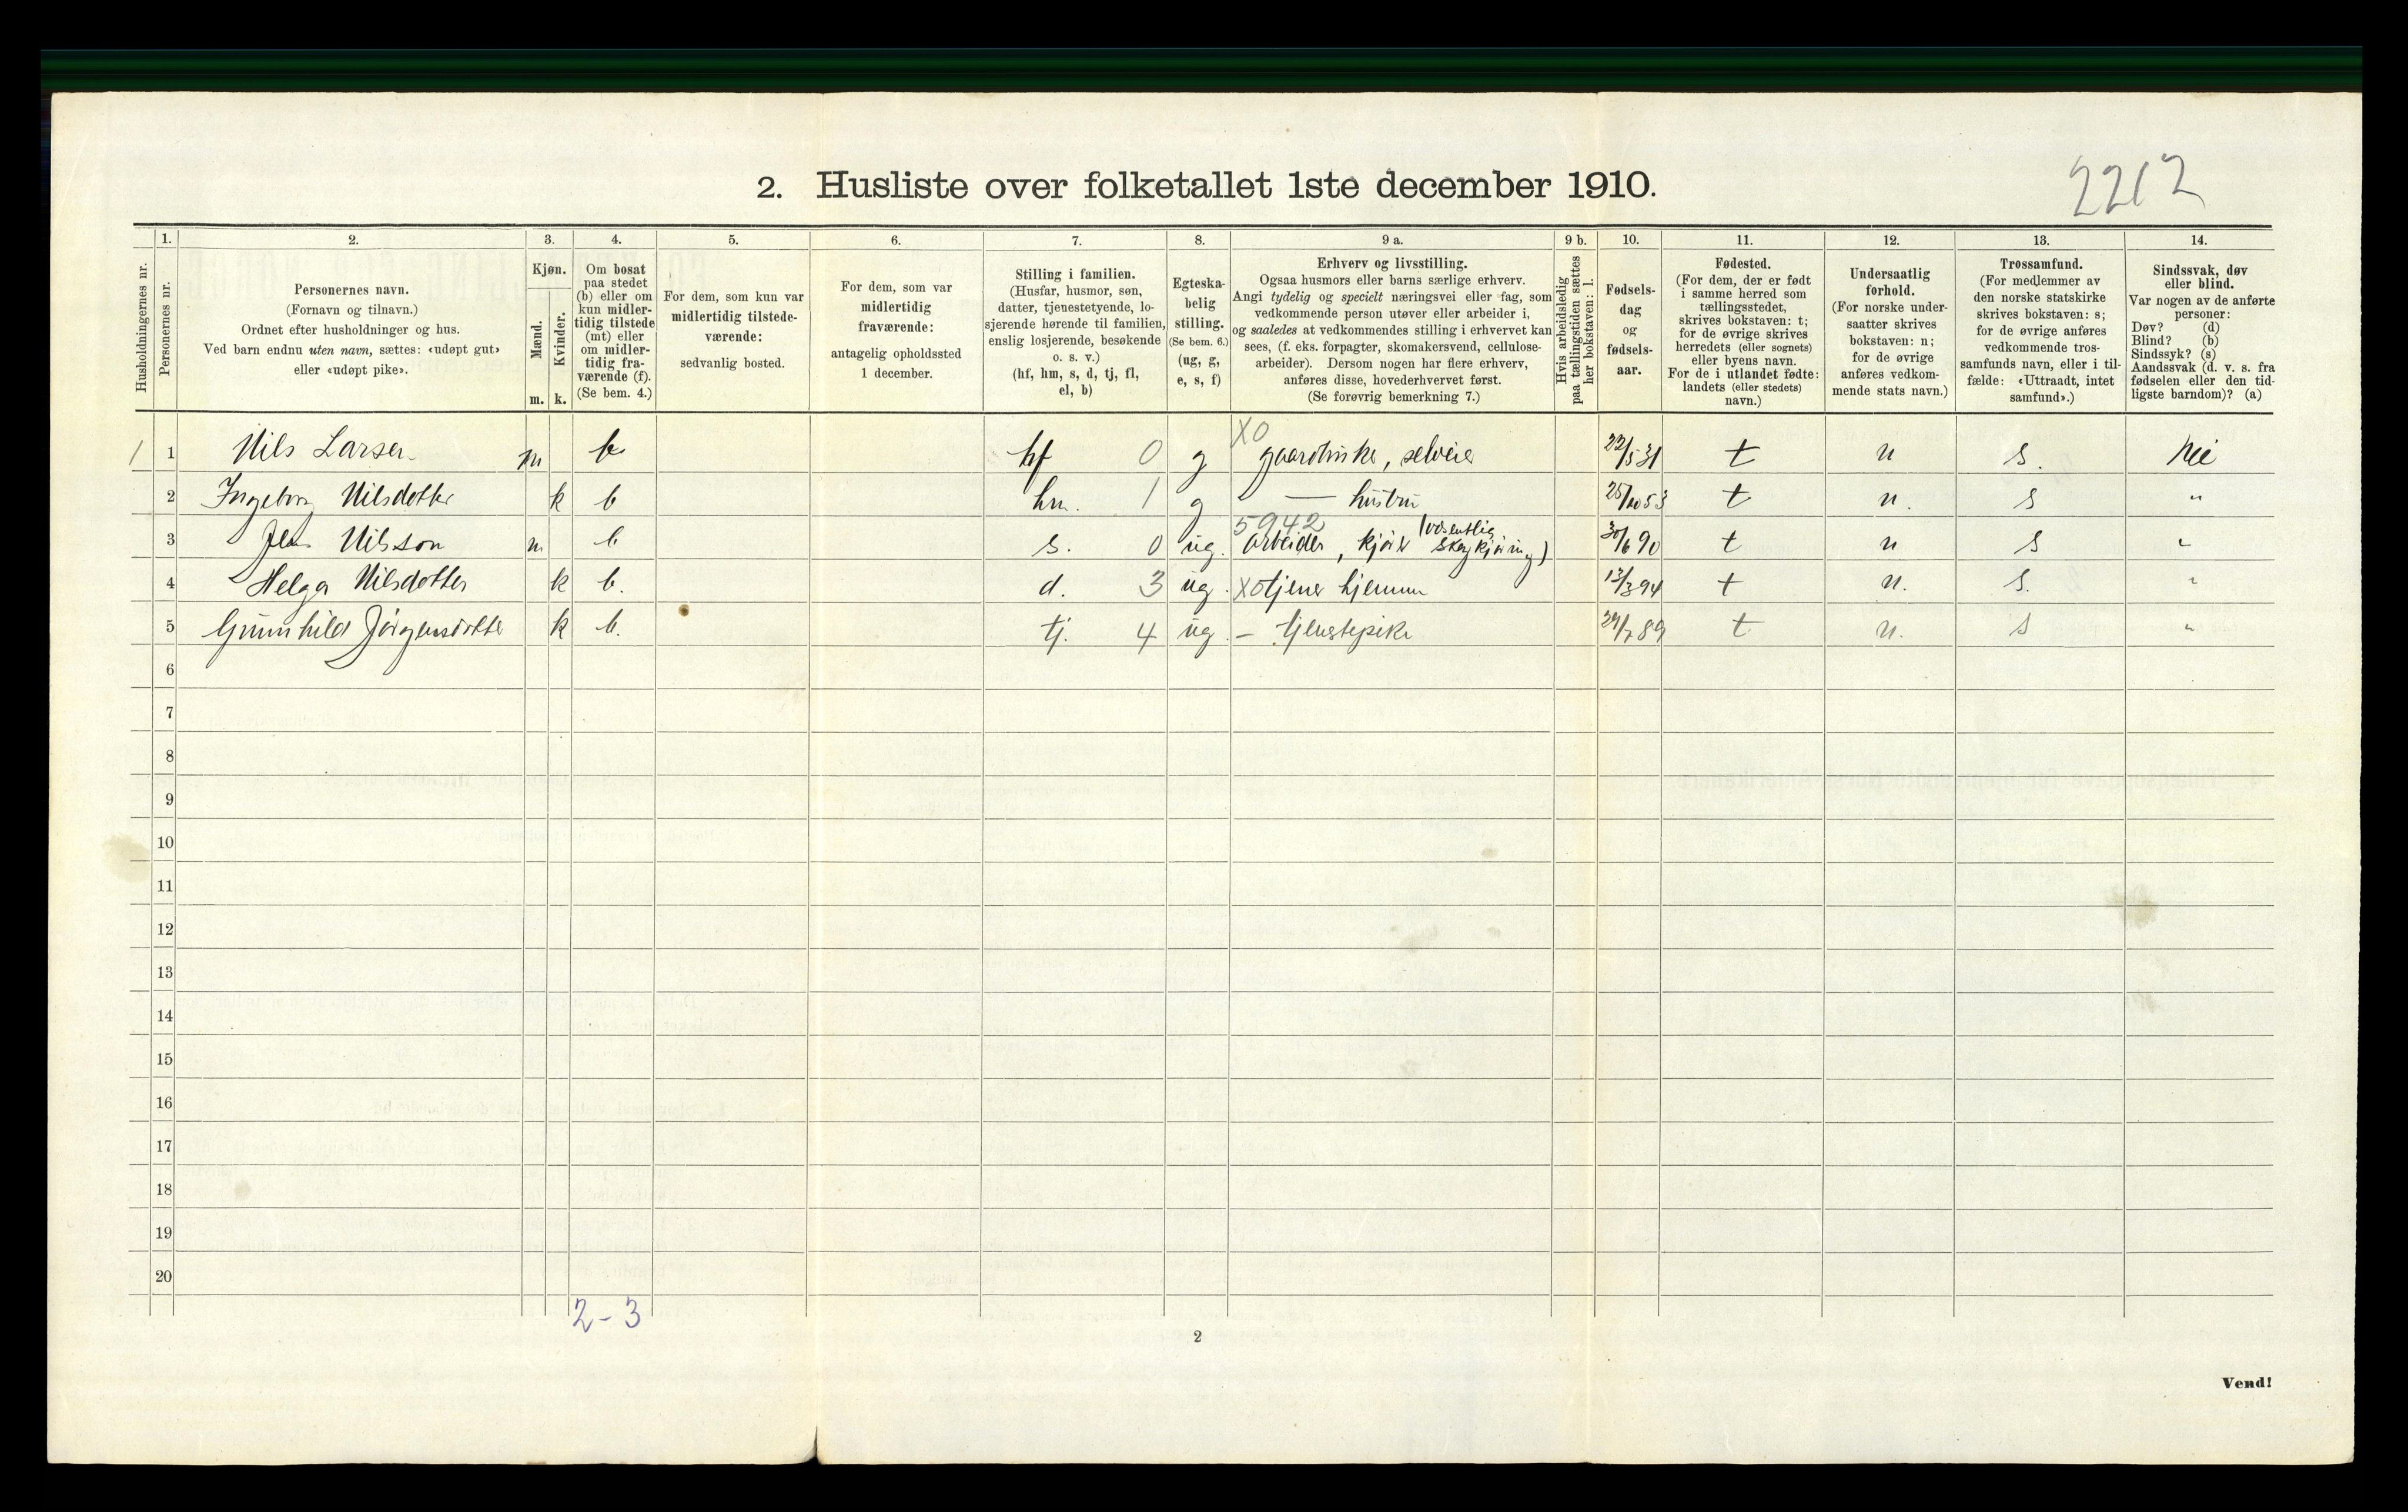 2212
2. Husliste over folketallet 1ste december 1910.
Husholdningernes nr.
1.
Personernes nr.
2.
Personernes navn.
(Fornavn og tilnavn.)
Ordnet efter husholdninger og hus.
Ved barn endnu uten navn, sættes: «udøpt gut»
eller «udøpt pike».
3.
Kjøn.
Mænd.
Kvinder.
m. k.
4.
Om bosat
paa stedet
(b) eller om
kun midler-
tidig tilstede
(mt) eller
om midler-
tidig fra-
værende (f).
(Se bem. 4.)
5.
For dem, som kun var
midlertidig tilstede-
værende:
sedvanlig bosted.
6.
For dem, som var
midlertidig
fraværende:
antagelig opholdssted
1 december.
7.
Stilling i familien.
(Husfar, husmor, søn,
datter, tjenestetyende, lo-
sjerende hørende til familien,
enslig losjerende, besøkende
o. s. v.)
(hf, hm, s, d, tj, fl,
el, b)
8.
Egteska-
belig
stilling.
(Se bem. 6.)
(ug, g,
e, s, f)
9 a.
Erhverv og livsstilling.
Ogsaa husmors eller barns særlige erhverv.
Angi tydelig og specielt næringsvei eller fag, som
vedkommende person utøver eller arbeider i,
og saaledes at vedkommendes stilling i erhvervet kan
sees, (f. eks. forpagter, skomakersvend, cellulose-
arbeider). Dersom nogen har flere erhverv,
anføres disse, hovederhvervet først.
(Se forøvrig bemerkning 7.)
9 b.
Hvis arbeidsledig
paa tællingstiden sættes
her bokstaven: l.
10.
Fødsels-
dag
og
fødsels-
aar.
11.
Fødested.
(For dem, der er født
i samme herred som
tællingsstedet,
skrives bokstaven: t;
for de øvrige skrives
herredets (eller sognets)
eller byens navn.
For de i utlandet fødte:
landets (eller stedets)
navn.)
12.
Undersaatlig
forhold.
(For norske under-
saatter skrives
bokstaven: n;
for de øvrige
anføres vedkom-
mende stats navn.)
13.
Trossamfund.
(For medlemmer av
den norske statskirke
skrives bokstaven: s;
for de øvrige anføres
vedkommende tros-
samfunds navn, eller i til-
fælde: «Uttraadt, intet
samfund».)
14.
Sindssvak, døv
eller blind.
Var nogen av de anførte
personer:
Døv? (d)
Blind? (b)
Sindssyk? (s)
Aandssvak (d. v. s. fra
fødselen eller den tid-
ligste barndom)? (a)
1 1 Nils Larsen m b hf 0 g X0 gaardbruker, selveier 22/5 31 t n s. Nei
2 Ingeborg Nilsdotter k b hm. 1 g — hustru 25/10 53 t n. s "
3 Jens Nilsson m b s. 0 ug. 5942 arbeider, kjører (væsentlig skogkjøring) 30/6 90 t n s "
4 Helga Nilsdotter k b. d. 3 ug. X0 tjener hjemme 13/3 94 t n. s. "
5 Gunnhild Jørgensdotter k b. tj. 4 ug. – tjenestepike 24/7 89 t n. s "
6
7
8
9
10
11
12
13
14
15
16
17
18
19
20
2-3
2
Vend!